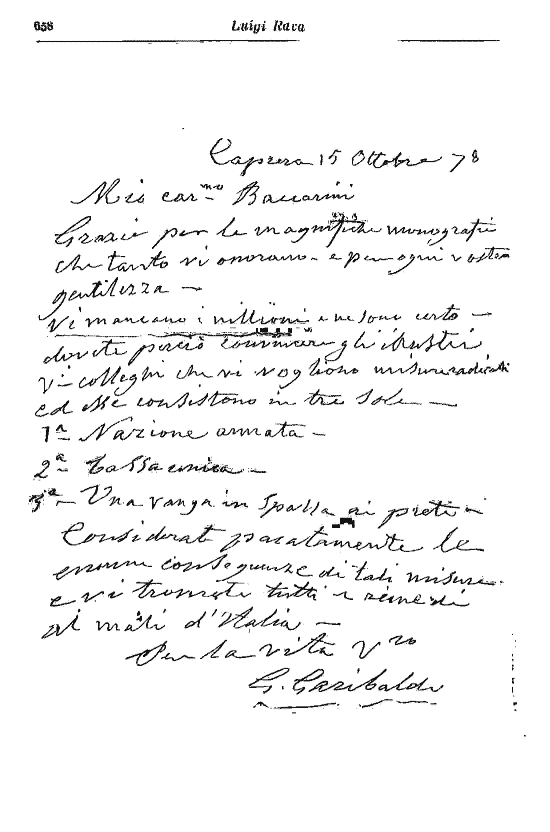 658
Luigi Rava
Caprera 15 Ottobre 78
Mio car.mo Baccarini
Grazie per le magnifiche monografie
che tanto vi onorano - e per ogni vostra
gentilezza -
Vi mancano i millioni e ne sono certo -
dovete perciò convincere gli illustri
Vi colleghi che vi vogliono misure radicali
ed esse consistono in tre sole -
1a Nazione armata -
2a Tassa unica -
3a - Una vanga in spalla ai preti -
Considerate pacatamente le
enormi conseguenze di tali misure
e vi troverete tutti i rimedi
ai mali d'Italia -
Per la vita Vro
G. Garibaldi